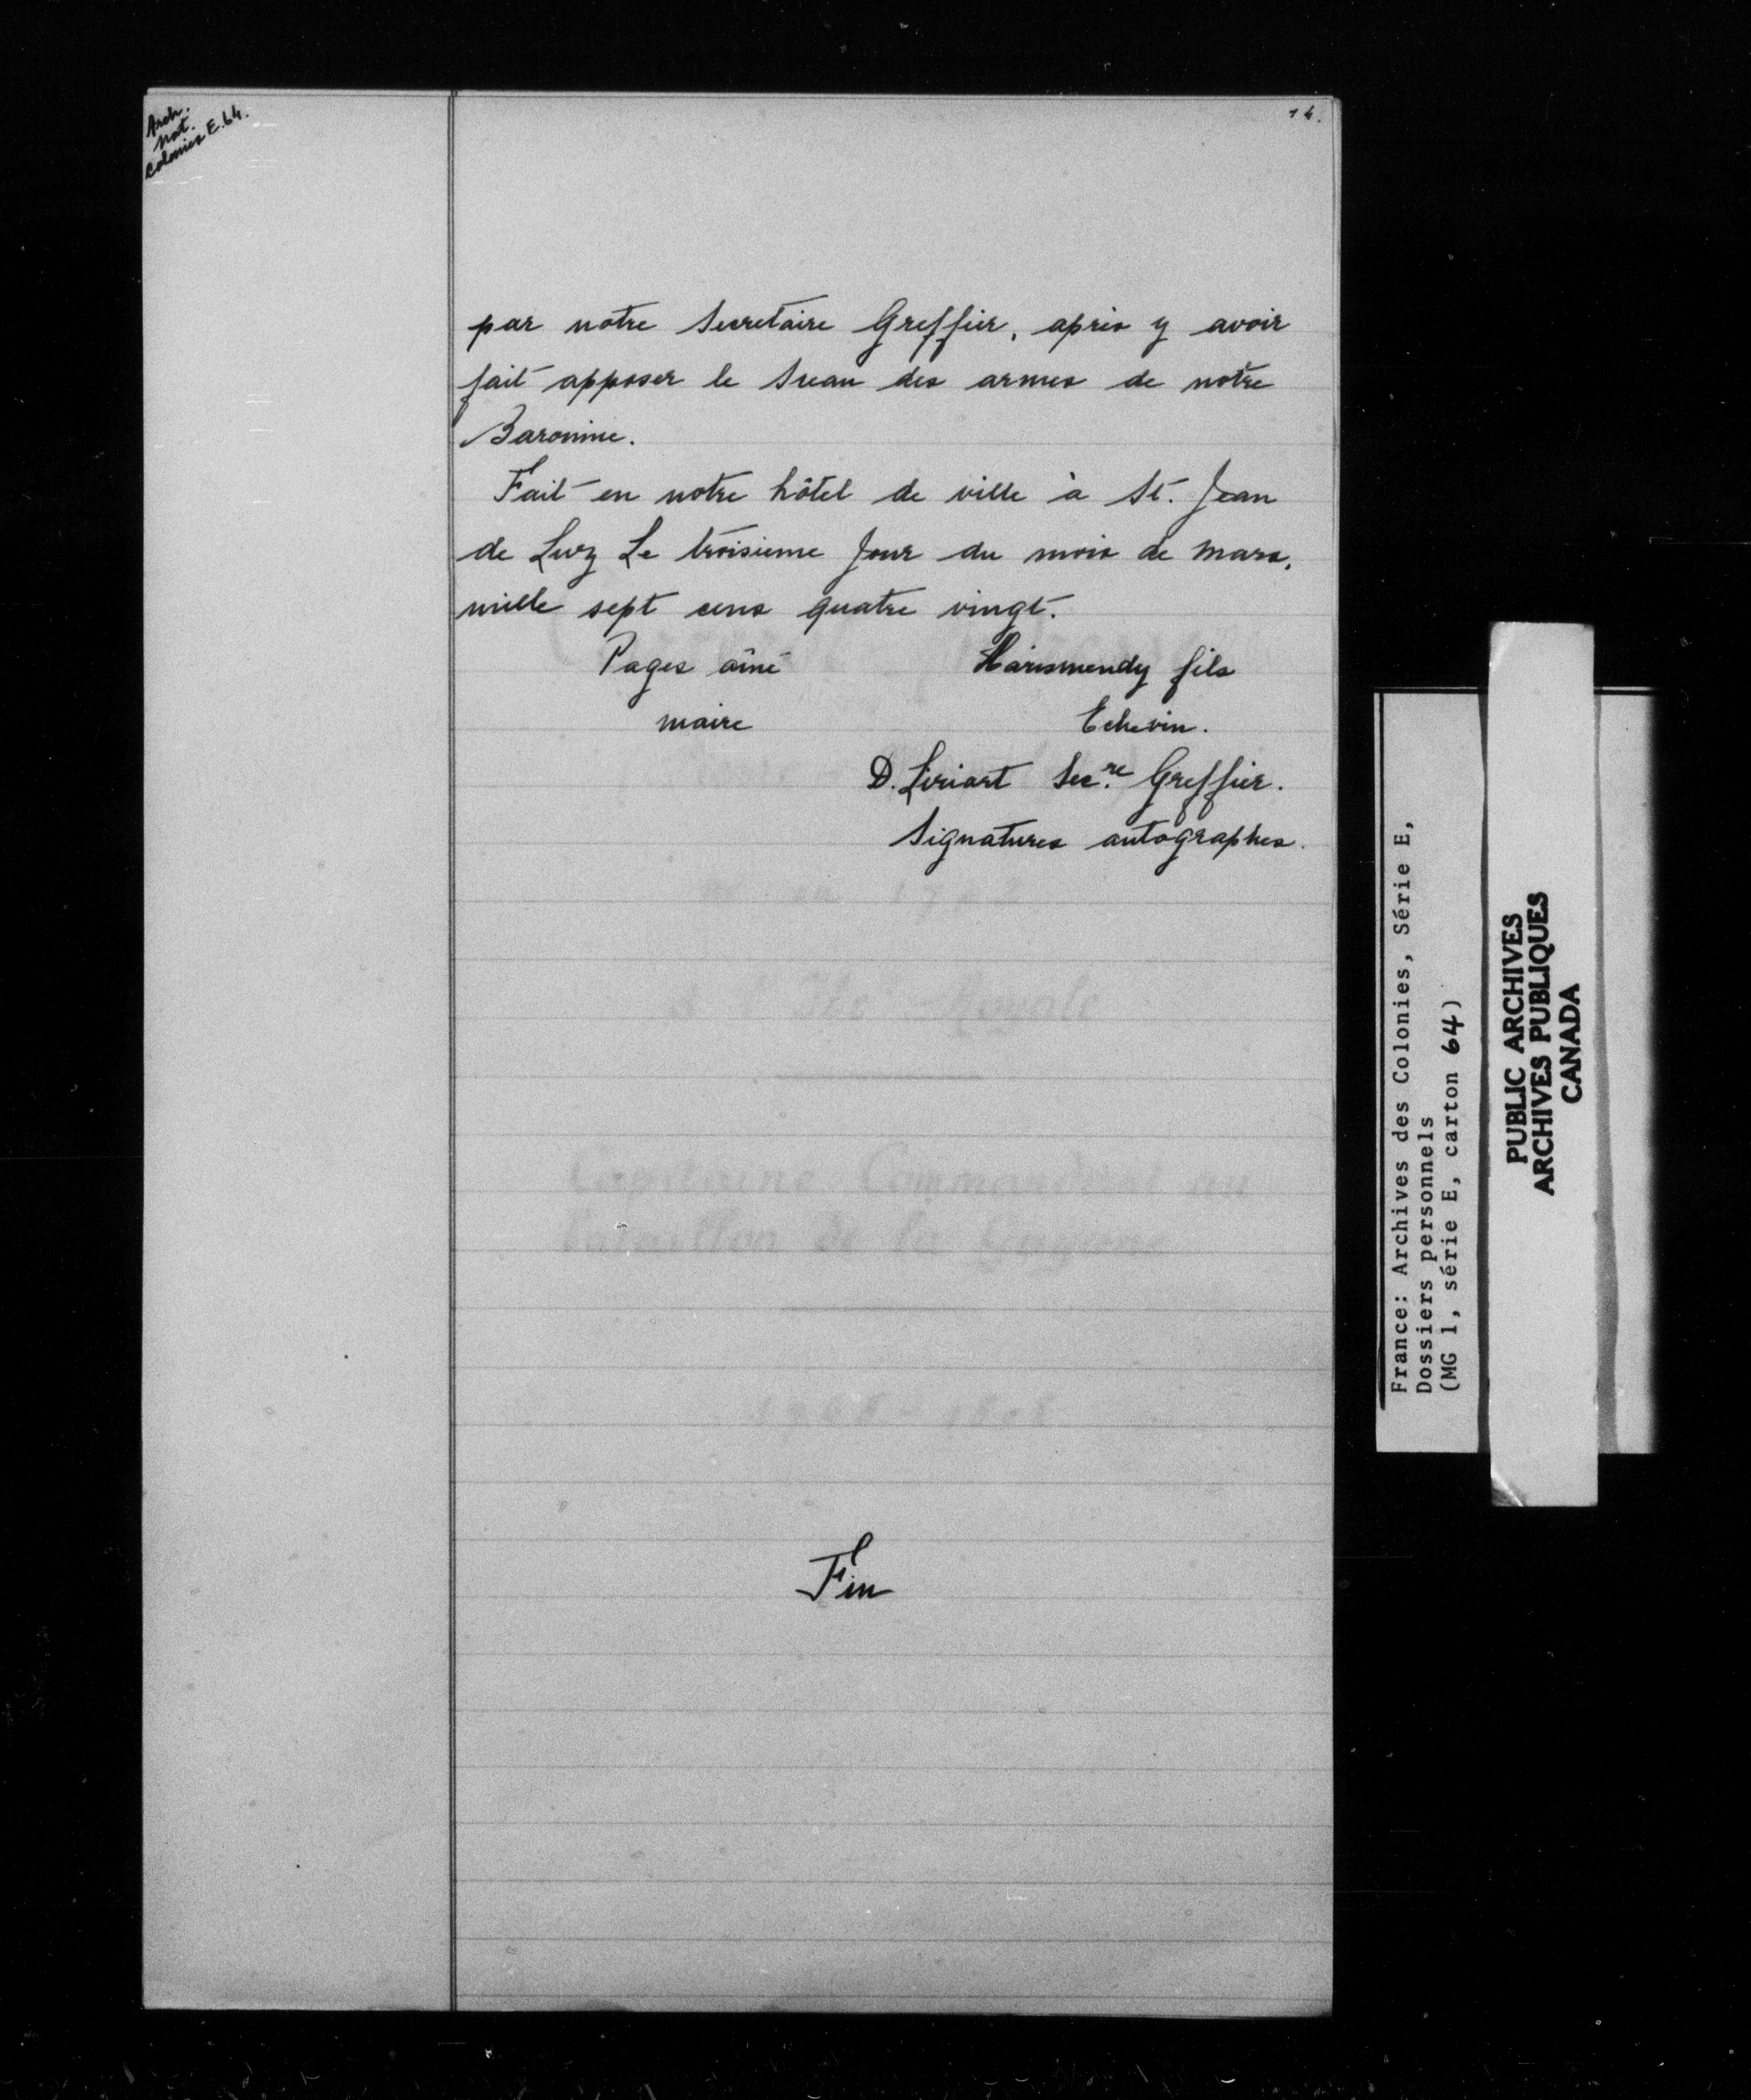 Arch.
Nat.
Colonies E.64.
14.
par notre Secretaire Greffier, après y avoir
fait apposer le Sceau des armes de notre
Baronnie.
Fait en notre hôtel de ville à St. Jean
de Luz Le troisieme Jour du mois de mars,
mille sept cens quatre vingt.
Pages aîné Harismendy fils
maire Echevin.
D. Liriart Sec.re Greffier.
Signatures autographes.
Fin
France: Archives des Colonies, Série E,
Dossiers personnels
(MG 1, série E, carton 64)
PUBLIC ARCHIVES
ARCHIVES PUBLIQUES
CANADA